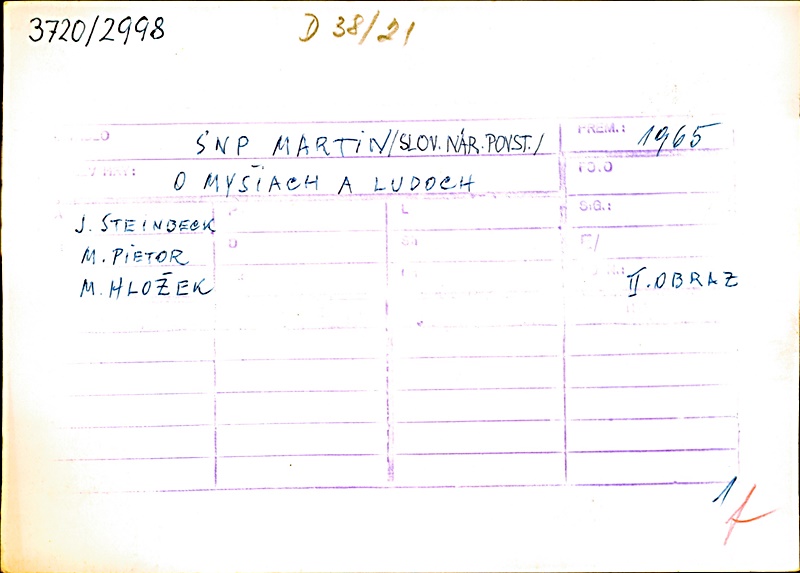 3720/2998
D 38/21
SNP MARTIN/SLOV. NÁR. POVST./
PREM.: 1965
O MYŠIACH A LUDOCH
FO.O
J. STEINBECK
L
SIG.:
M. PIETOR
D
Sc
E/
M. HLOŽEK
II. OBRAZ
1